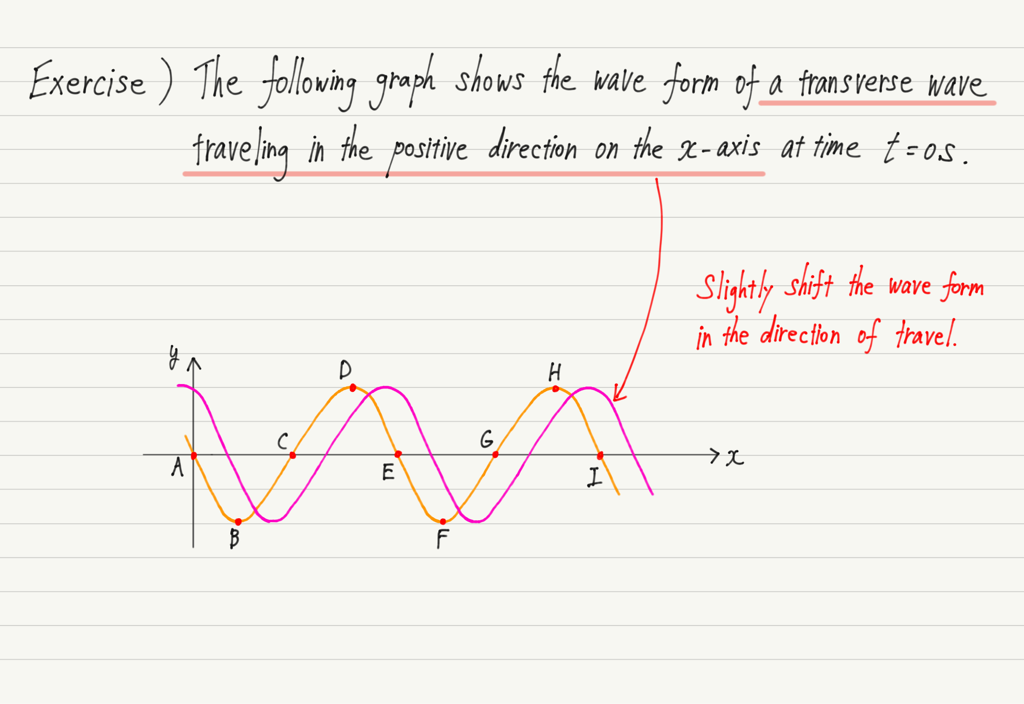 Exercise) The following graph shows the wave form of a transverse wave
traveling in the positive direction on the x-axis at time t = 0s.
Slightly shift the wave form
in the direction of travel.
y
D
H
C
G
A
E
I
x
B
F